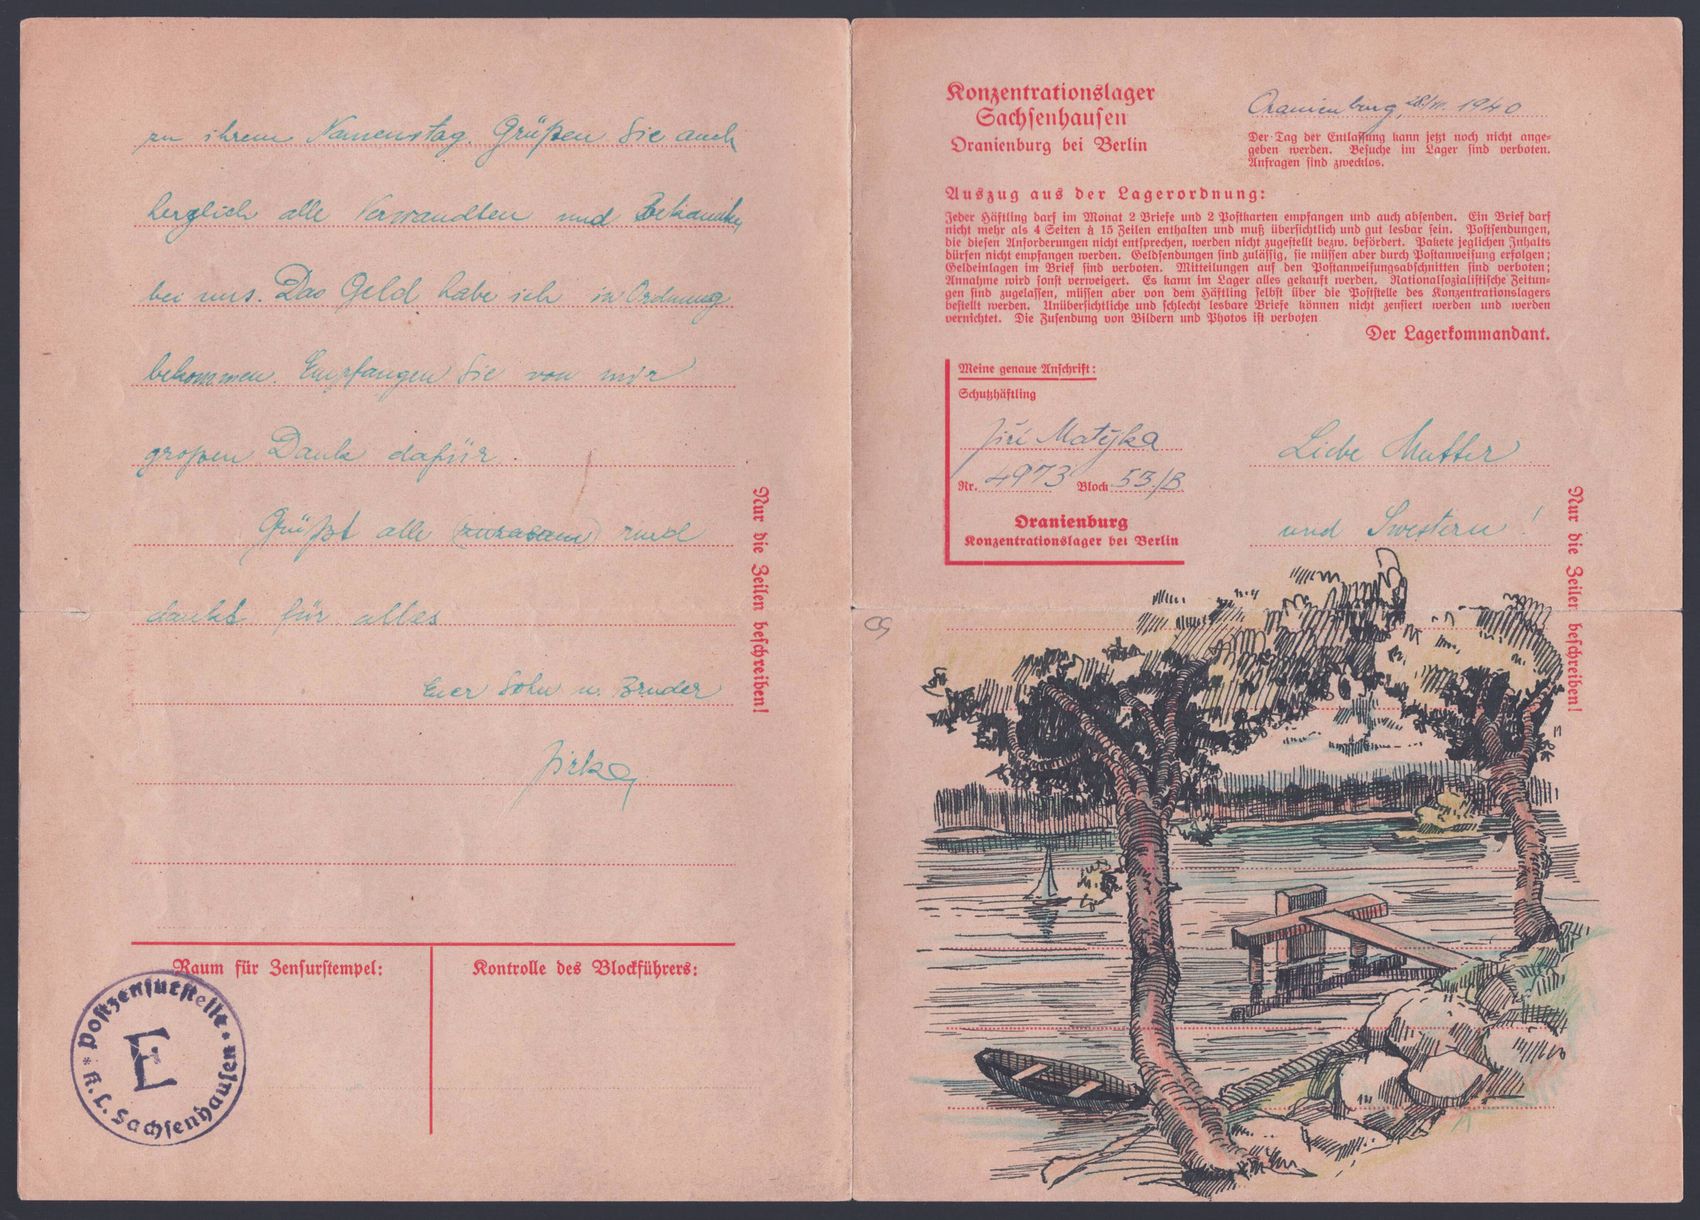 zu ihrem Namenstag. Grüßen Sie auch
herzlich alle Verwandten und Bekannte
bei uns. Das Geld habe ich in Ordnung
bekommen. Empfangen Sie von mir
großen Dank dafür.
Grüßt alle und
dankt für alles
Euer Sohn u. Bruder
Jirka
Nur die Zeilen beschreiben!
Raum für Zensurstempel:
Kontrolle des Blockführers:
Postzensurstelle
E
* K. L. Sachsenhausen *
Konzentrationslager
Sachsenhausen
Oranienburg bei Berlin
Oranienburg, 1940
Der Tag der Entlassung kann jetzt noch nicht ange-
geben werden. Besuche im Lager sind verboten.
Anfragen sind zwecklos.
Auszug aus der Lagerordnung:
Jeder Häftling darf im Monat 2 Briefe und 2 Postkarten empfangen und auch absenden. Ein Brief darf
nicht mehr als 4 Seiten à 15 Zeilen enthalten und muß übersichtlich und gut lesbar sein. Postsendungen,
die diesen Anforderungen nicht entsprechen, werden nicht zugestellt bezw. befördert. Pakete jeglichen Inhalts
dürfen nicht empfangen werden. Geldsendungen sind zulässig, sie müssen aber durch Postanweisung erfolgen;
Geldeinlagen im Brief sind verboten. Mitteilungen auf den Postanweisungsabschnitten sind verboten;
Annahme wird sonst verweigert. Es kann im Lager alles gekauft werden. Nationalsozialistische Zeitun-
gen sind zugelassen, müssen aber von dem Häftling selbst über die Poststelle des Konzentrationslagers
bestellt werden. Unübersichtliche und schlecht lesbare Briefe können nicht zensiert werden und werden
vernichtet. Die Zusendung von Bildern und Photos ist verboten
Der Lagerkommandant.
Meine genaue Anschrift:
Schutzhäftling
Jiří Matyska
Nr. 4973 Block 53/B
Oranienburg
Konzentrationslager bei Berlin
Liebe Mutter
und Swestern!
Nur die Zeilen beschreiben!